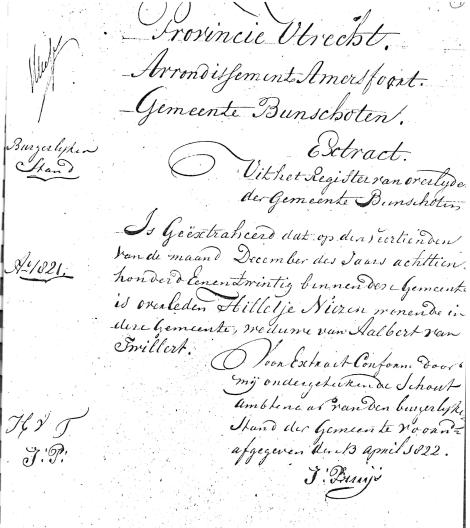 Provincie Utrecht.
Arrondissement Amersfoort.
Gemeente Bunschoten.
Burgerlijken
Stand
Extract.
Uit het Register van overlyde
der Gemeente Bunschoten
Is Geëxtraheerd dat op den veertienden
van de maand December des Jaars achttien
Ao 1821.
honderd Eenentwintig binnen dese Gemeente
is overleden Hilletje Nizen wonende in
dese Gemeente, weduwe van Aalbert van
Twillert.
Voor Extract Conform door
mij ondergetekende Schout
ambtenaar van den burgerlijke
H v T
Stand der Gemeente voorn
J: P:
afgegeven den 13 April 1822.
J: Buijs